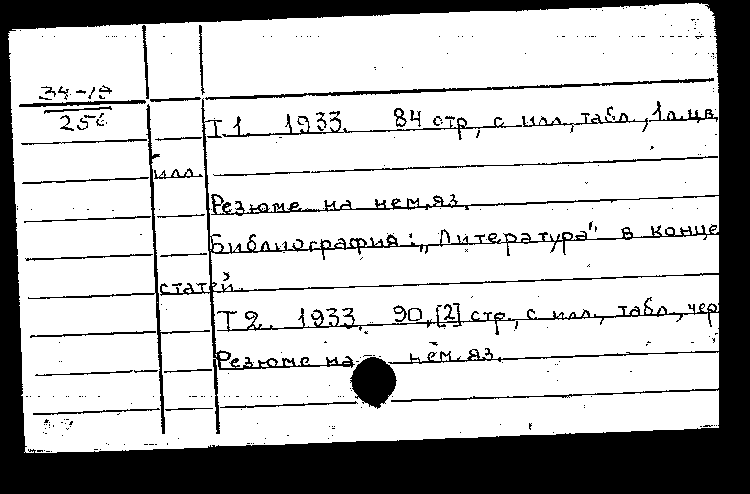 34-19
256
Т.1. 1933. 84 стр., с илл., табл., 1 л. цв.
илл.
Резюме на нем. яз.
Библиография: „Литература" в конце
статей.
Т 2. 1933. 90, [2] стр., с илл., табл., чер
Резюме на нем. яз.